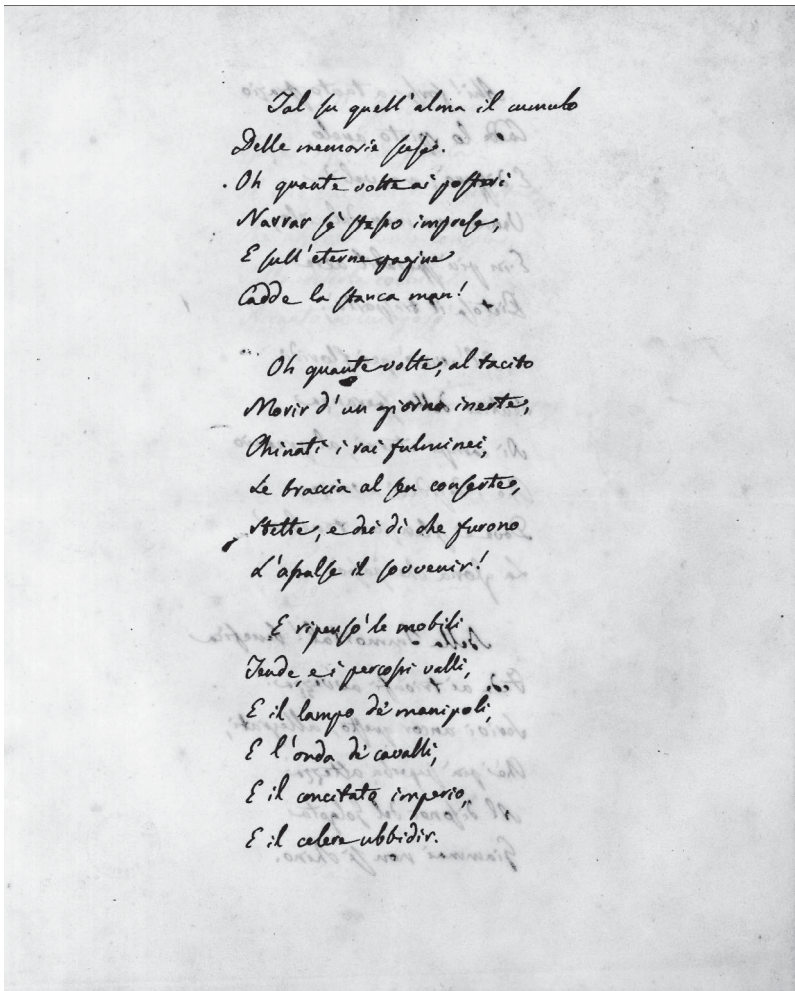 Tal su quell'alma il cumulo
Delle memorie scese.
Oh quante volte ai posteri
Narrar sè stesso imprese,
E sull'eterne pagine
Cadde la stanca man!
Oh quante volte, al tacito
Morir d'un giorno inerte,
Chinati i rai fulminei,
Le braccia al sen conserte,
Stette, e dei dì che furono
L'assalse il sovvenir!
E ripensò le mobili
Tende, e i percossi valli,
E il lampo de' manipoli,
E l'onda de' cavalli,
E il concitato imperio,
E il celere ubbidir.